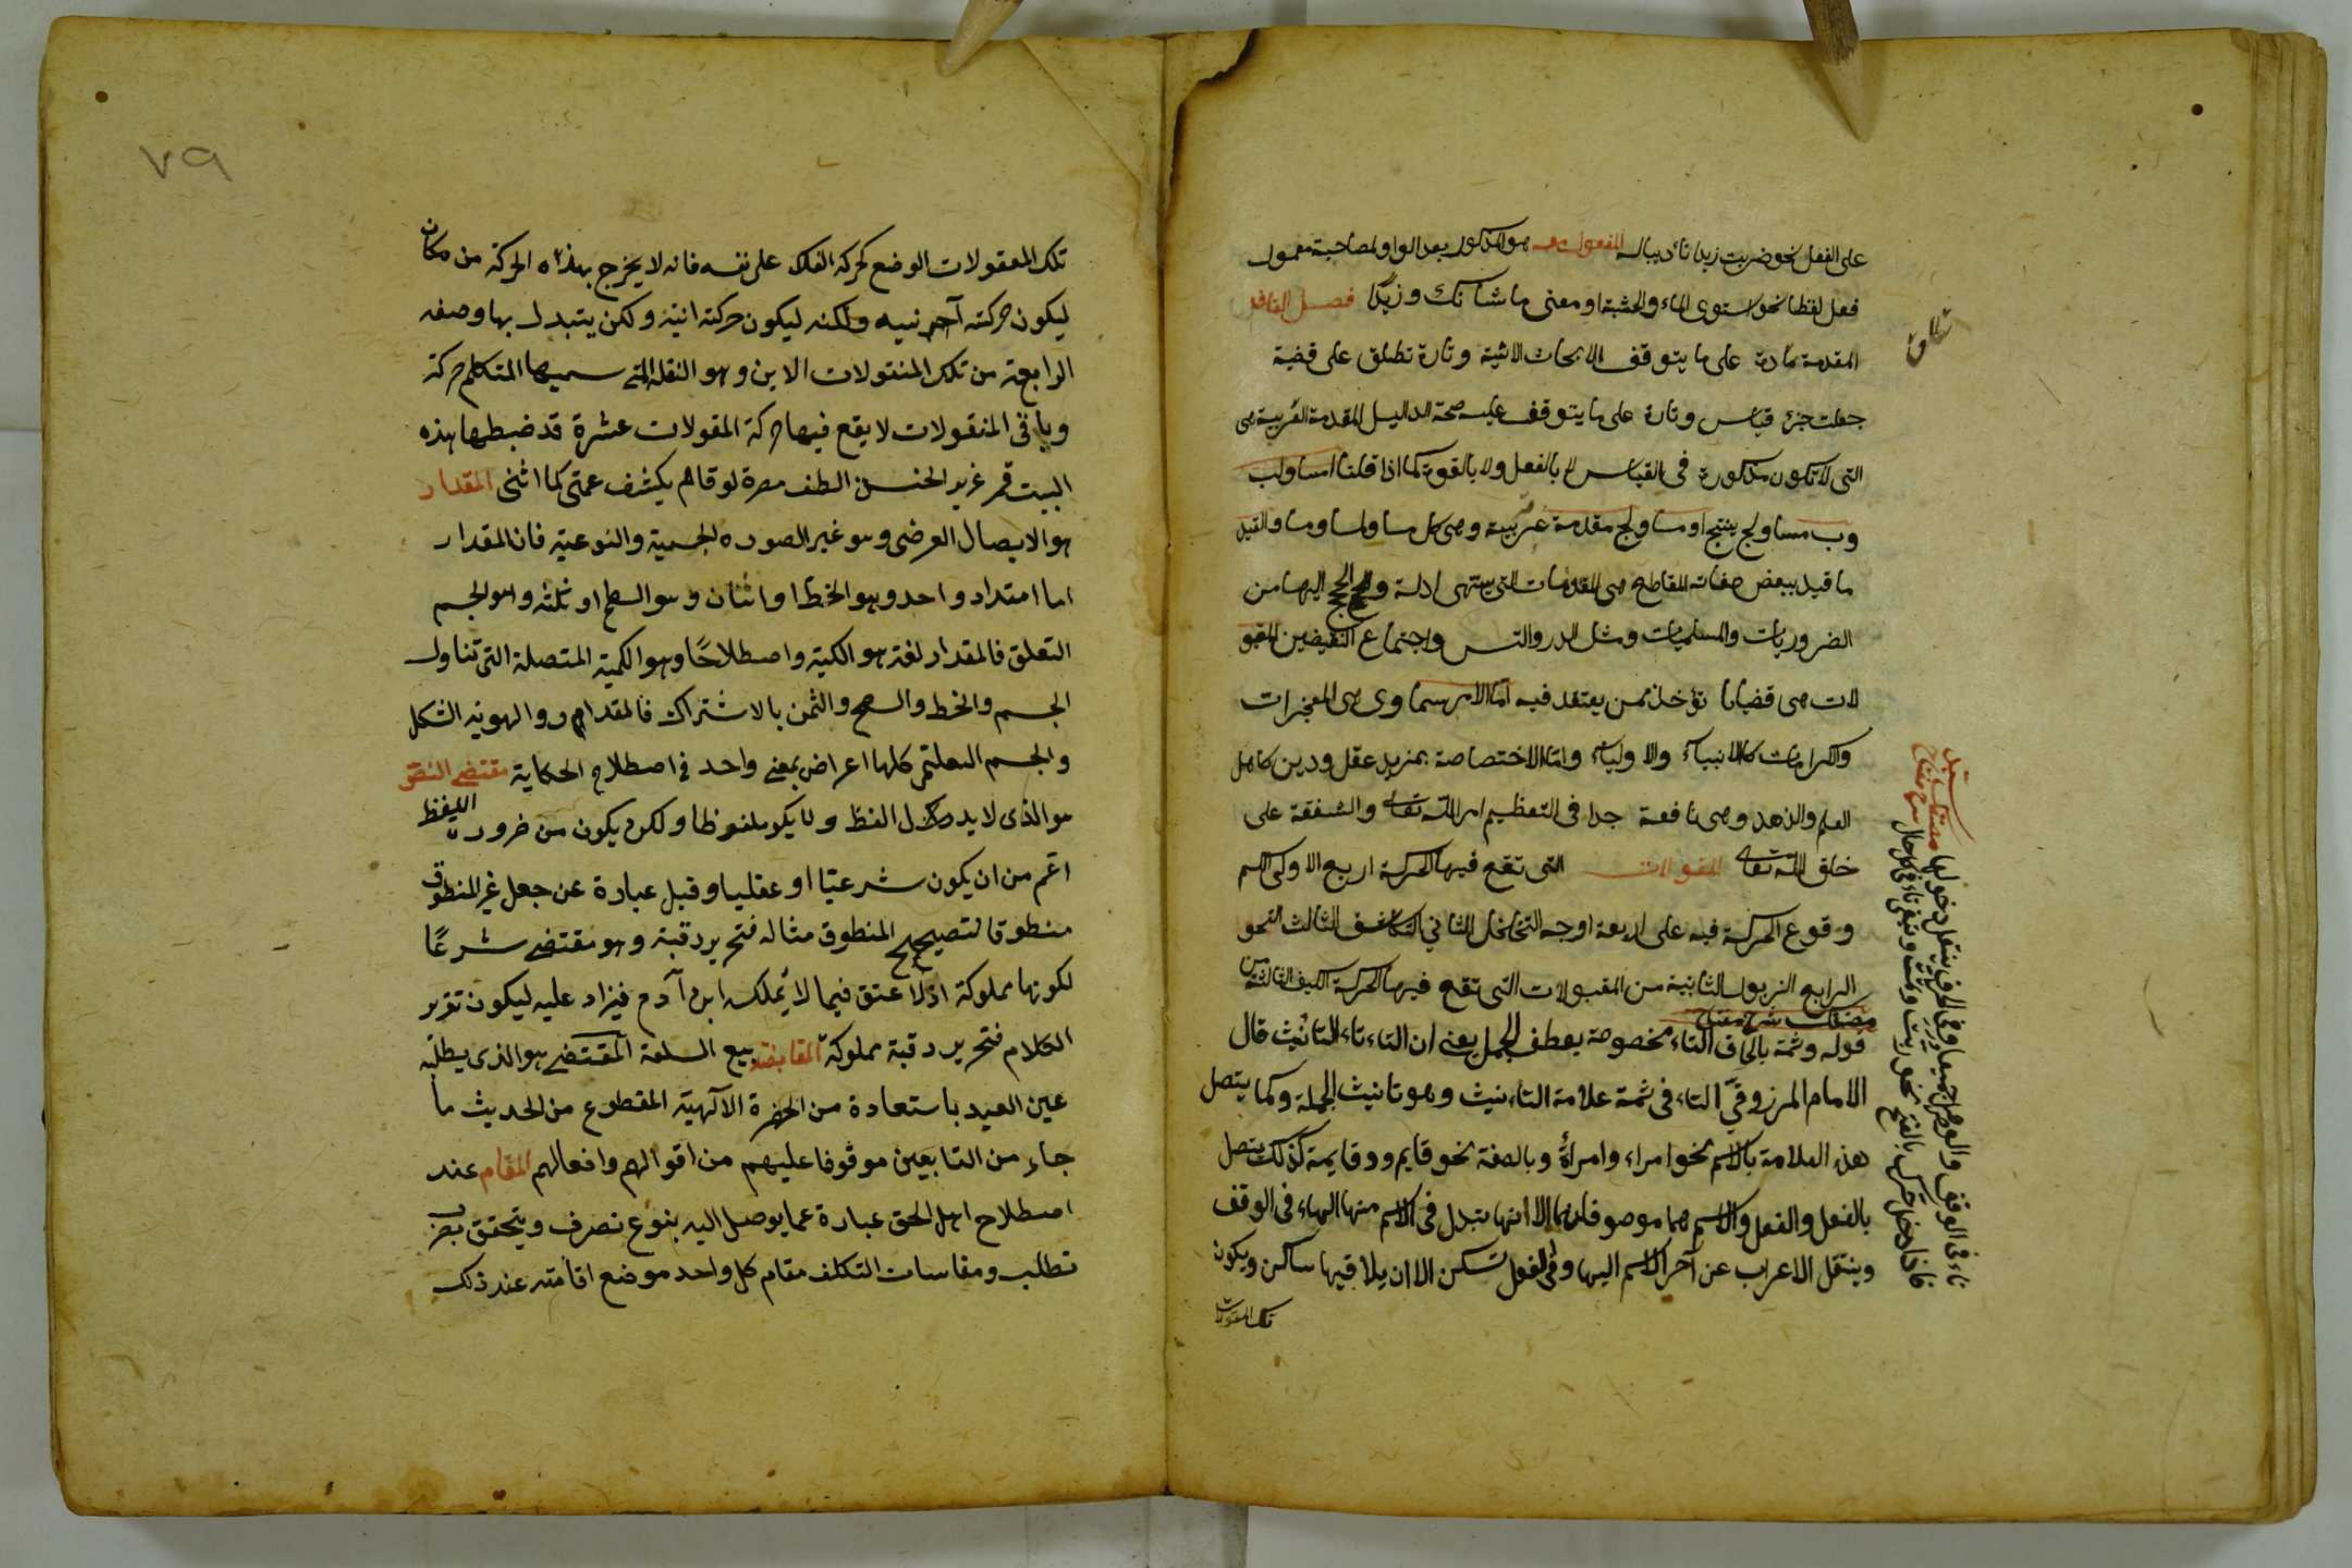 على الفعل نحو ضربت زيدا تأديبا له المفعول معه هو المذكور بعد الواو لمصاحبة معمول
فعل لفظا نحو استوى الماء والخشبة او معنى ما شانك وزيدًا فصل القاف
المقدمة تارة على ما يتوقف الابحاث الاتية وتارة تطلق على قضية
جعلت جزء قياس وتارة على ما يتوقف عليه صحة الدليل المقدمة الغريبة هى
التى لا تكون مذكورة فى القياس لا بالفعل ولا بالقوة كما اذا قلنا ا مساو لب
وب مساو لج ينتج ا مساو لج مقدمة غريبة وهى كل مساو لمساو مساو المقيد
ما قيد ببعض صفاته المقاطع هى المقدمات التى ينتهى ادلة والحجج اليها من
الضروريات والمسلميات ومثل الدور والتس واجتماع النقيضين المقبو
لات هى قضايا تؤخذ ممن يعتقد فيه اما لامر سماوى هى المعجزات
والكرامات كالانبياء والاولياء واما لاختصاصه بمزيد عقل ودين كاهل
العلم والزهد وهى نافعة جدا فى التعظيم امر الله تعالى والشفقة على
خلق الله تعالى المقولات التى تقع فيها الحركة اربع الاولى الكم
وقوع الحركة فيه على اربعة اوجه التخلخل الثاني التكاثف الثالث النمو
الرابع الذبول الثانية من المقبولات التى تقع فيها الحركة الكيف الثالثة من
قوله وثمة بالحاق التاء مخصوصة بعطف الجمل يعنى ان التاء تاء التأنيث قال
الامام المرزوقي التاء فى ثمة علامة التأنيث وهو تانيث الجملة وكما يتصل
هذه العلامة بالاسم نحو امراء وامرأة وبالصفة نحو قايم وقايمة كذلك يتصل
بالفعل والفعل والاسم هما موصوفان بها الا انها تبدل فى الاسم منها الهاء فى الوقف
وينتقل الاعراب عن آخر الاسم اليها وفى الفعل تسكن الا ان يلاقيها ساكن ويكون
تلك المقولات
تلك المعقولات الوضع كحركة الفلك على نفسه فانه لا يخرج بهذه الحركة من مكان
ليكون حركته آخر نيه ولكنه ليكون حركته انيه ولكن يتبدل بها وصفه
الرابعة من تلك المنقولات الاين وهو النقلة التى سميها المتكلم حركة
وباقى المنقولات لا يقع فيها حركة المقولات عشرة قد ضبطها هذه
البيت قمر غزير الحسن الطف مصره لو قام يكشف غمتى كما اثنى المقدار
هو الايصال العرضى وهو غير الصوره الجسمية والنوعية فان المقدار
اما امتداد واحد وهو الخط او اثنان وهو السطح او ثلثه وهو الجسم
التعلق فالمقدار لغة هو الكمية واصطلاحًا وهو الكمية المتصلة التى تناول
الجسم والخط والسطح والثمن بالاشتراك فالمقدار والهوية الشكل
والجسم التعلتمى كلها اعراض بمعنى واحد فى اصطلاح الحكاية مقتضى النص
هو الذى لا يدل اللفظ ولا يكون ملفوظا ولكن يكون من ضرورة اللفظ
اعم من ان يكون شرعيا او عقليا وقيل عبارة عن جعل غير المنطوق
منطوقا لتصحيح المنطوق مثاله فتحرير رقبة وهو مقتضى شرعًا
لكونها مملوكة اذ لا عتق فيما لا يملك ابن آدم فيزاد عليه ليكون تقرير
الكلام فتحرير رقبة مملوكة المقايضة بيع السلعة المقتضى هو الذى يطلبه
عين العبد باستعادة من الحضرة الآلهية المقطوع من الحديث ما
جاء من التابعين موقوفا عليهم من اقوالهم وافعالهم المقام عند
اصطلاح اهل الحق عبارة عما يوصل اليه بنوع تصرف ويتحقق بضرب
تطلب ومقاسات التكلف مقام كل واحد موضع اقامته عند ذلك
٧٩